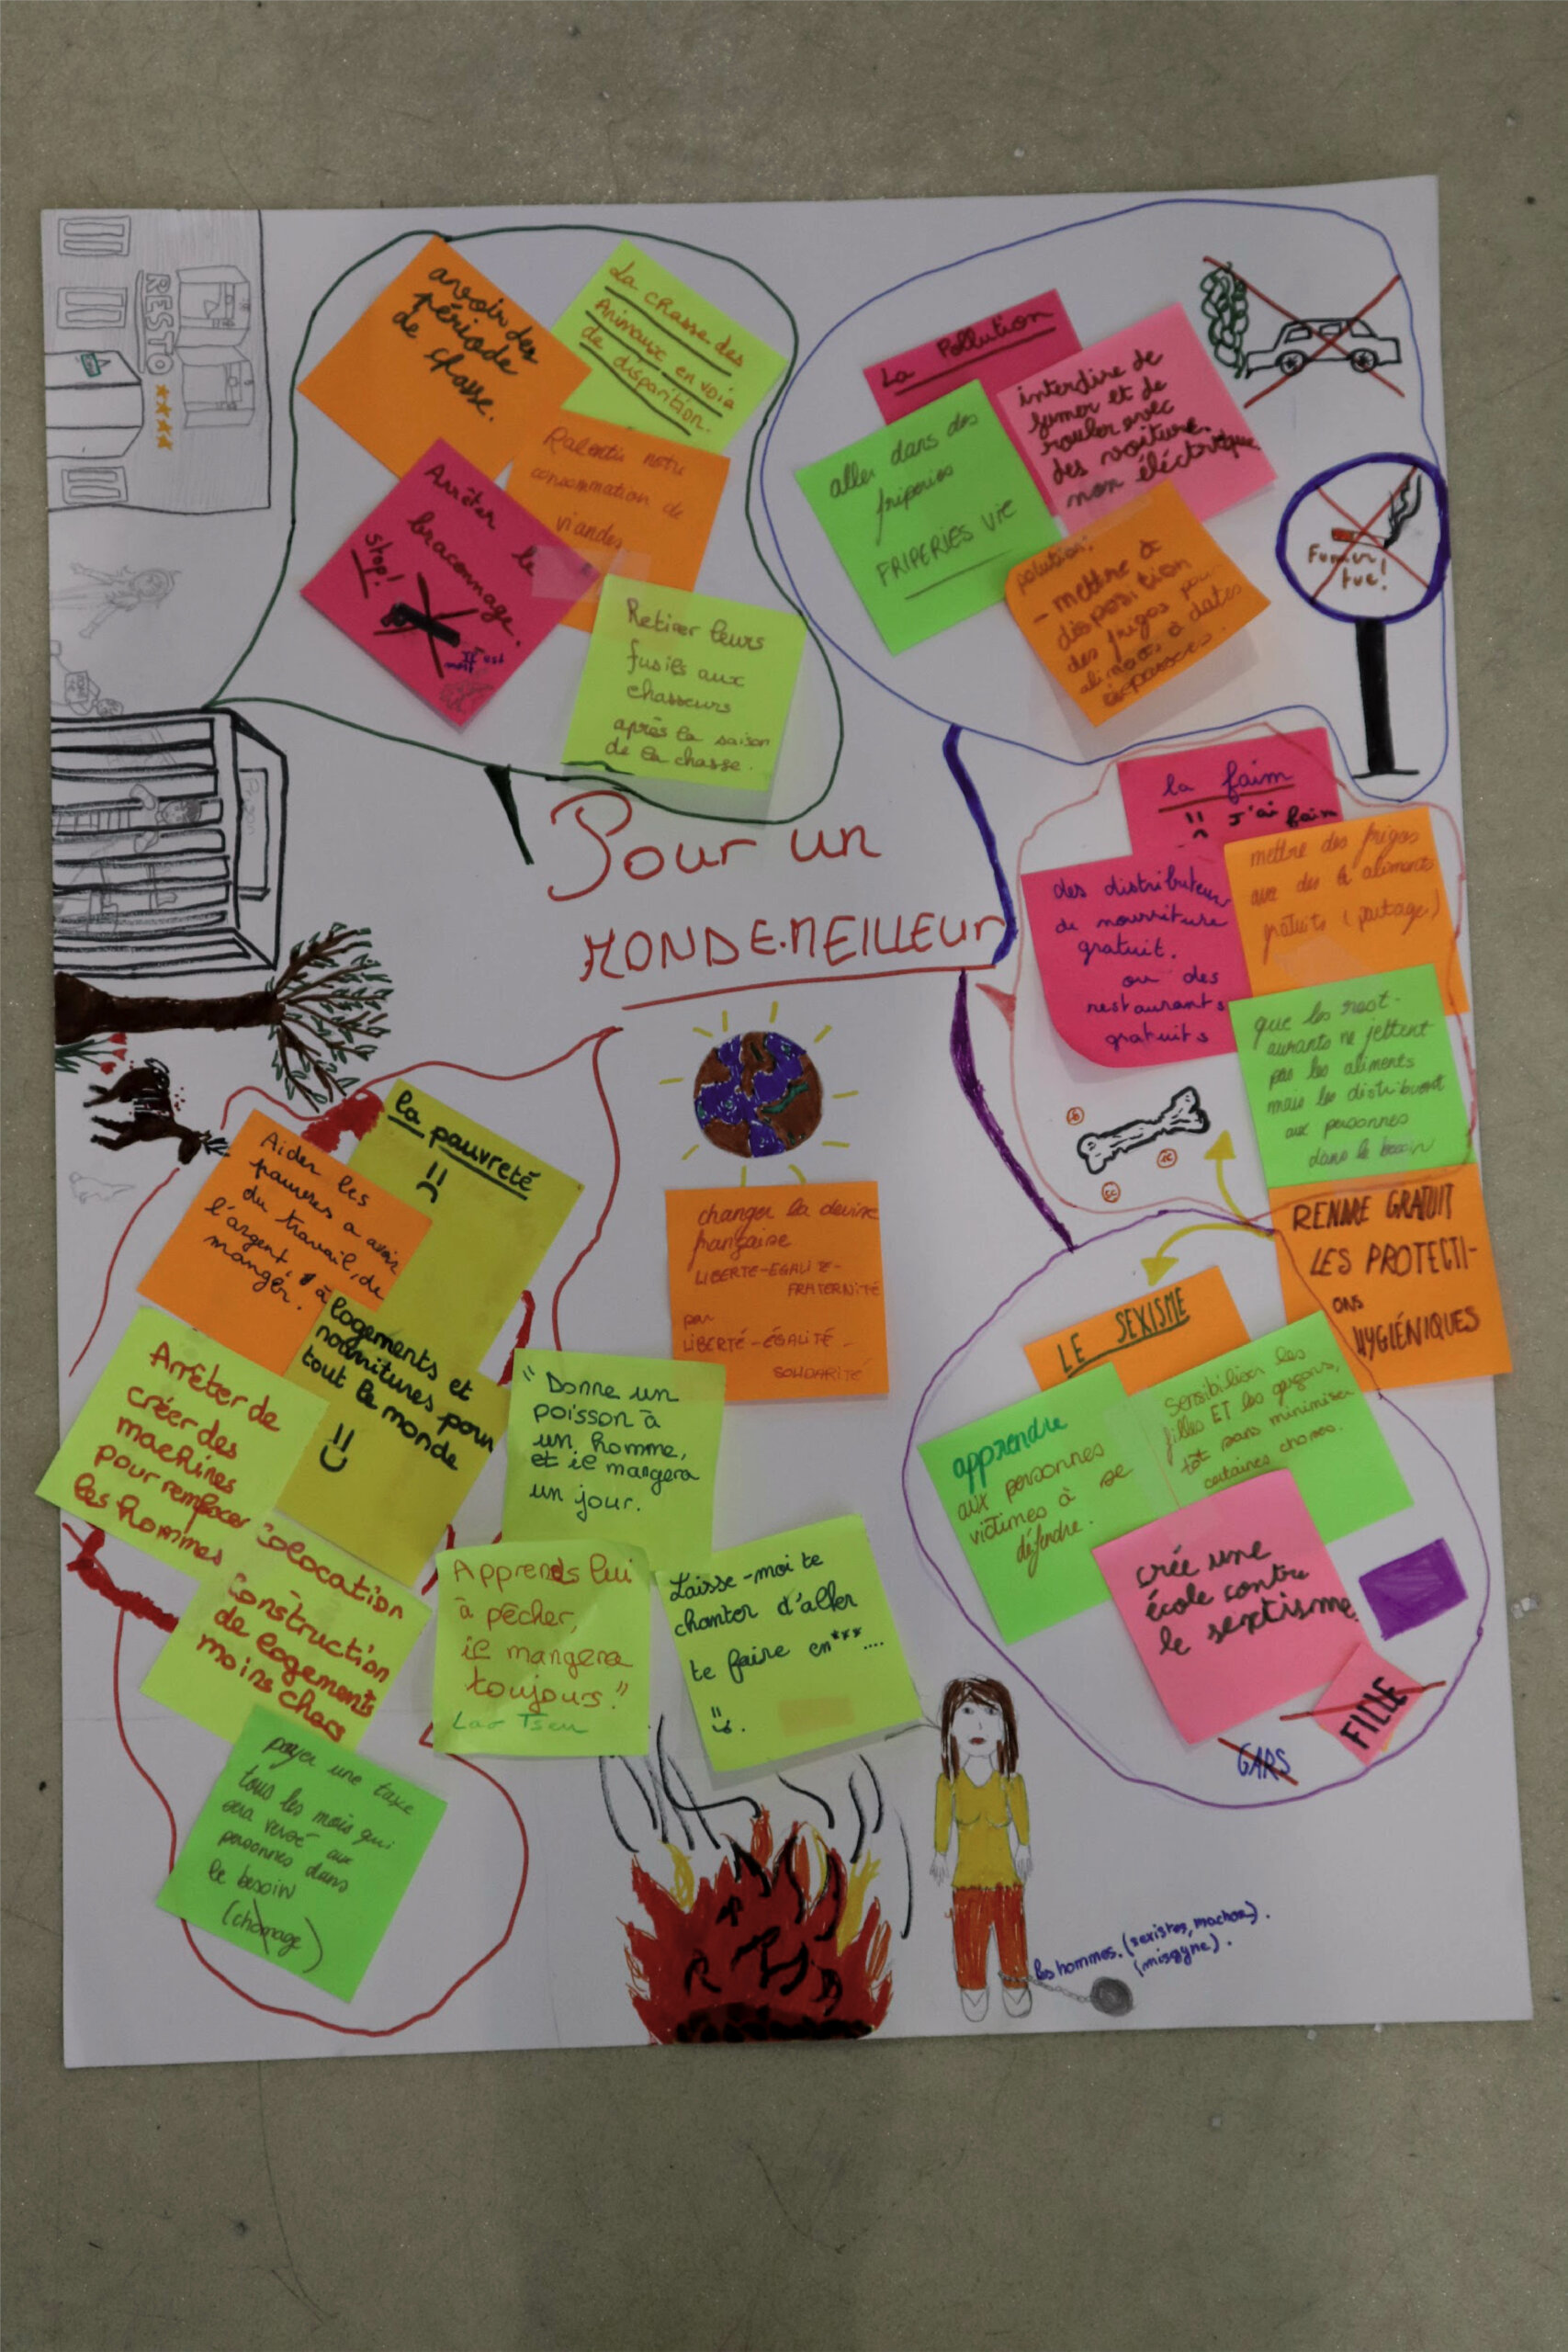 Pour un
MONDE MEILLEUR
RESTO
avoir des
période
de chasse.
La chasse des
Animaux en voie
de disparition.
Ralentir notre
consommation de
viandes
Arrêter le
braconnage.
Stop!
Il est
mort
Retirer leurs
fusils aux
chasseurs
après la saison
de la chasse.
La Pollution
interdire de
fumer et de
rouler avec
des voiture
non éléctrique
aller dans des
friperies
FRIPERIES VIE
polution:
- mettre à
disposition
des frigos pour
aliments à dates
dépassées.
Fumer
tue!
la faim
J'ai faim
des distributeurs
de nourriture
gratuit.
ou des
restaurants
gratuits
mettre des frigos
avec des aliments
gratuits (partage)
que les rest-
aurants ne jettent
pas les aliments
mais les distribuent
aux personnes
dans le besoin
RENDRE GRATUIT
LES PROTECTI-
ONS
HYGIÉNIQUES
LE SEXISME
apprendre
aux personnes
victimes à se
défendre.
Sensibiliser les
filles ET les garçons,
tôt sans minimiser
certaines choses.
crée une
école contre
le sextisme
FILLE
GARS
la pauvreté
Aider les
pauvres a avoir
du travail, de
l'argent, à
manger.
logements et
nourritures pour
tout le monde
Arrêter de
créer des
machines
pour remplacer
les hommes
Colocation
Construction
de logements
moins chers
payer une taxe
tous les mois qui
sera versé aux
personnes dans
le besoin
(chômage)
changer la devise
française
LIBERTE-EGALITE-
FRATERNITÉ
par
LIBERTÉ-ÉGALITÉ-
SOLIDARITÉ
"Donne un
poisson à
un homme,
et il mangera
un jour.
Apprends lui
à pêcher,
il mangera
toujours."
Lao Tseu
Laisse-moi te
chanter d'aller
te faire en***....
les hommes. (sexistes, machos).
(misogyne).